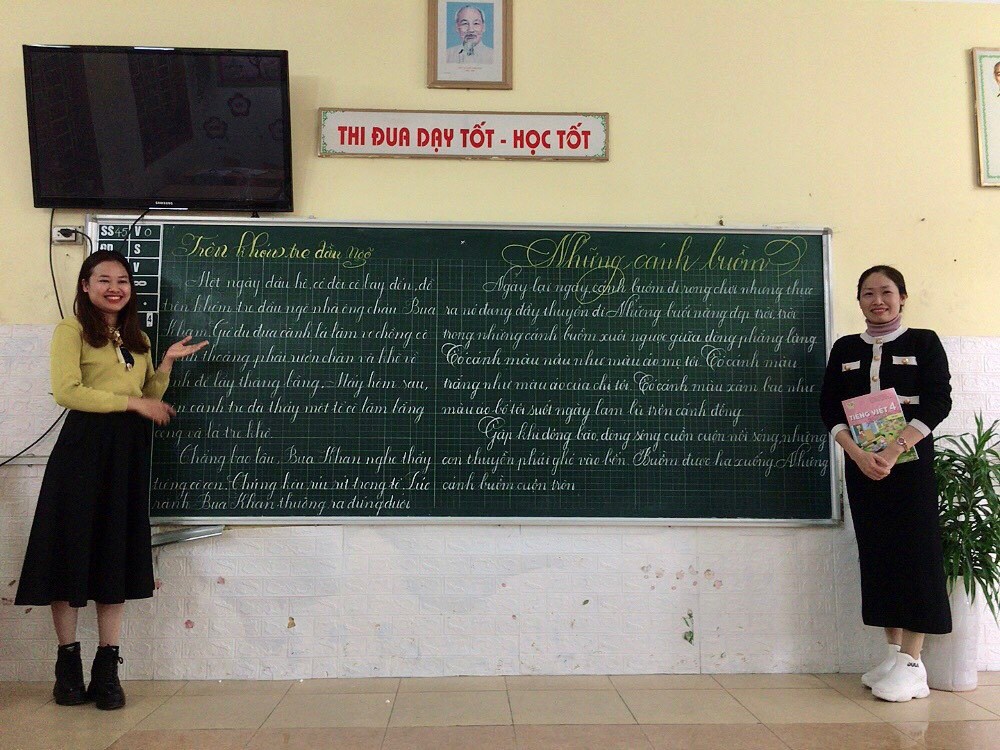 THI ĐUA DẠY TỐT - HỌC TỐT
SAMSUNG
SS 45 V 0
S
V
4
Trên khóm tre đầu ngõ
Một ngày đầu hè, có đôi cò bay đến, đỗ
trên khóm tre đầu ngõ nhà ông cháu Bua
Kham. Gió đu đưa cành lá làm vợ chồng cò
thoảng phải rướn chân và khẽ vỗ
để lấy thăng bằng. Mấy hôm sau,
cành tre đã thấy một tổ cò làm bằng
cọng và lá tre khô.
Chẳng bao lâu, Bua Kham nghe thấy
tiếng cò con. Chúng kêu ríu rít trong tổ. Lúc
rảnh Bua Kham thường ra đứng dưới
Những cánh buồm
Ngày lại ngày, cánh buồm đi rong chơi nhưng thực
ra nó đang đẩy thuyền đi. Những buổi nắng đẹp trời, trôi
trong những cánh buồm xuôi ngược giữa dòng phẳng lặng.
Có cánh màu nâu như màu áo mẹ tôi. Có cánh màu
trắng như màu áo của chị tôi. Có cánh màu xám bạc như
màu áo bố tôi suốt ngày lam lũ trên cánh đồng.
Gặp khi dông bão, dòng sông cuồn cuộn nổi sóng, những
con thuyền phải ghé vào bến. Buồm được hạ xuống. Những
cánh buồm cuộn tròn
TIẾNG VIỆT 4